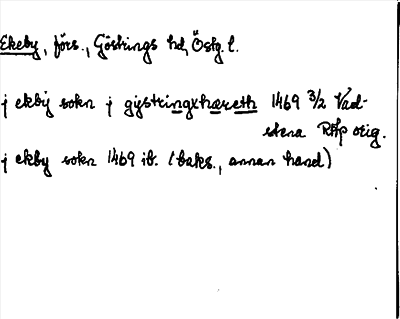 Ekeby, förs., Göstrings hd, Östg. l.
j ekbÿ sokn j gÿstringxhæreth 1469 3/2 Vad-
stena RAp orig.
j ekbÿ sokn 1469 ib. (baks., annan hand)